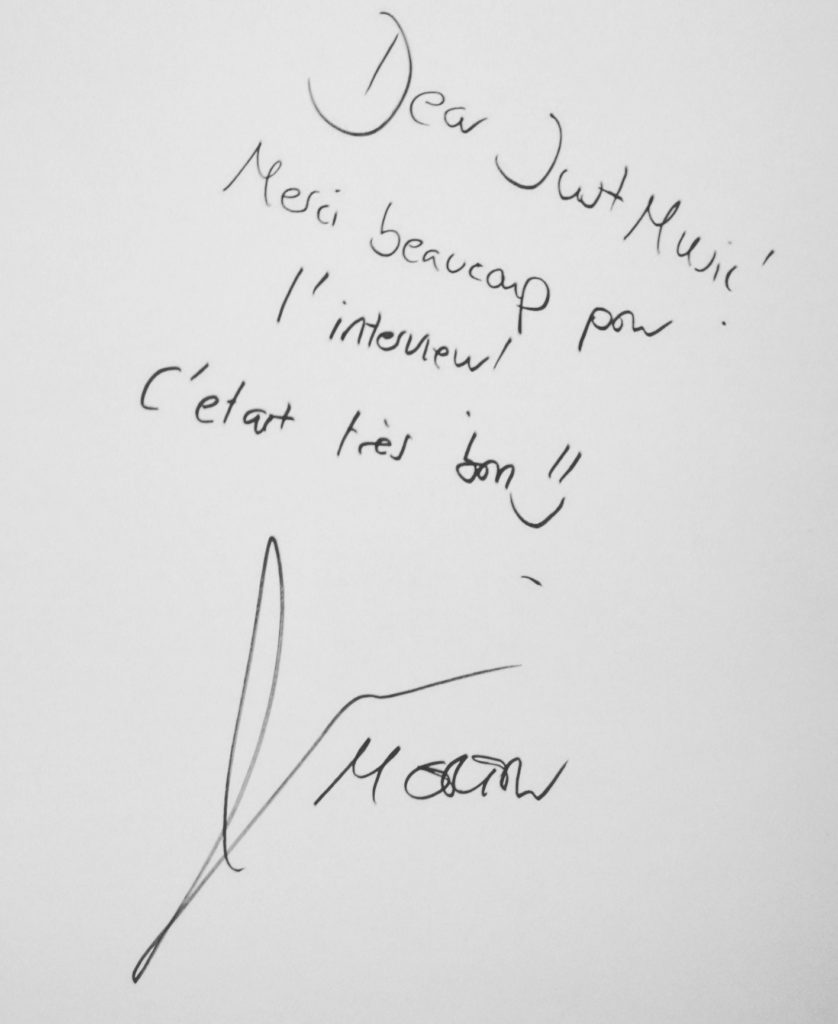 Dear Just Music!
Merci beaucoup pour
l'interview!
C'etait très bon!!